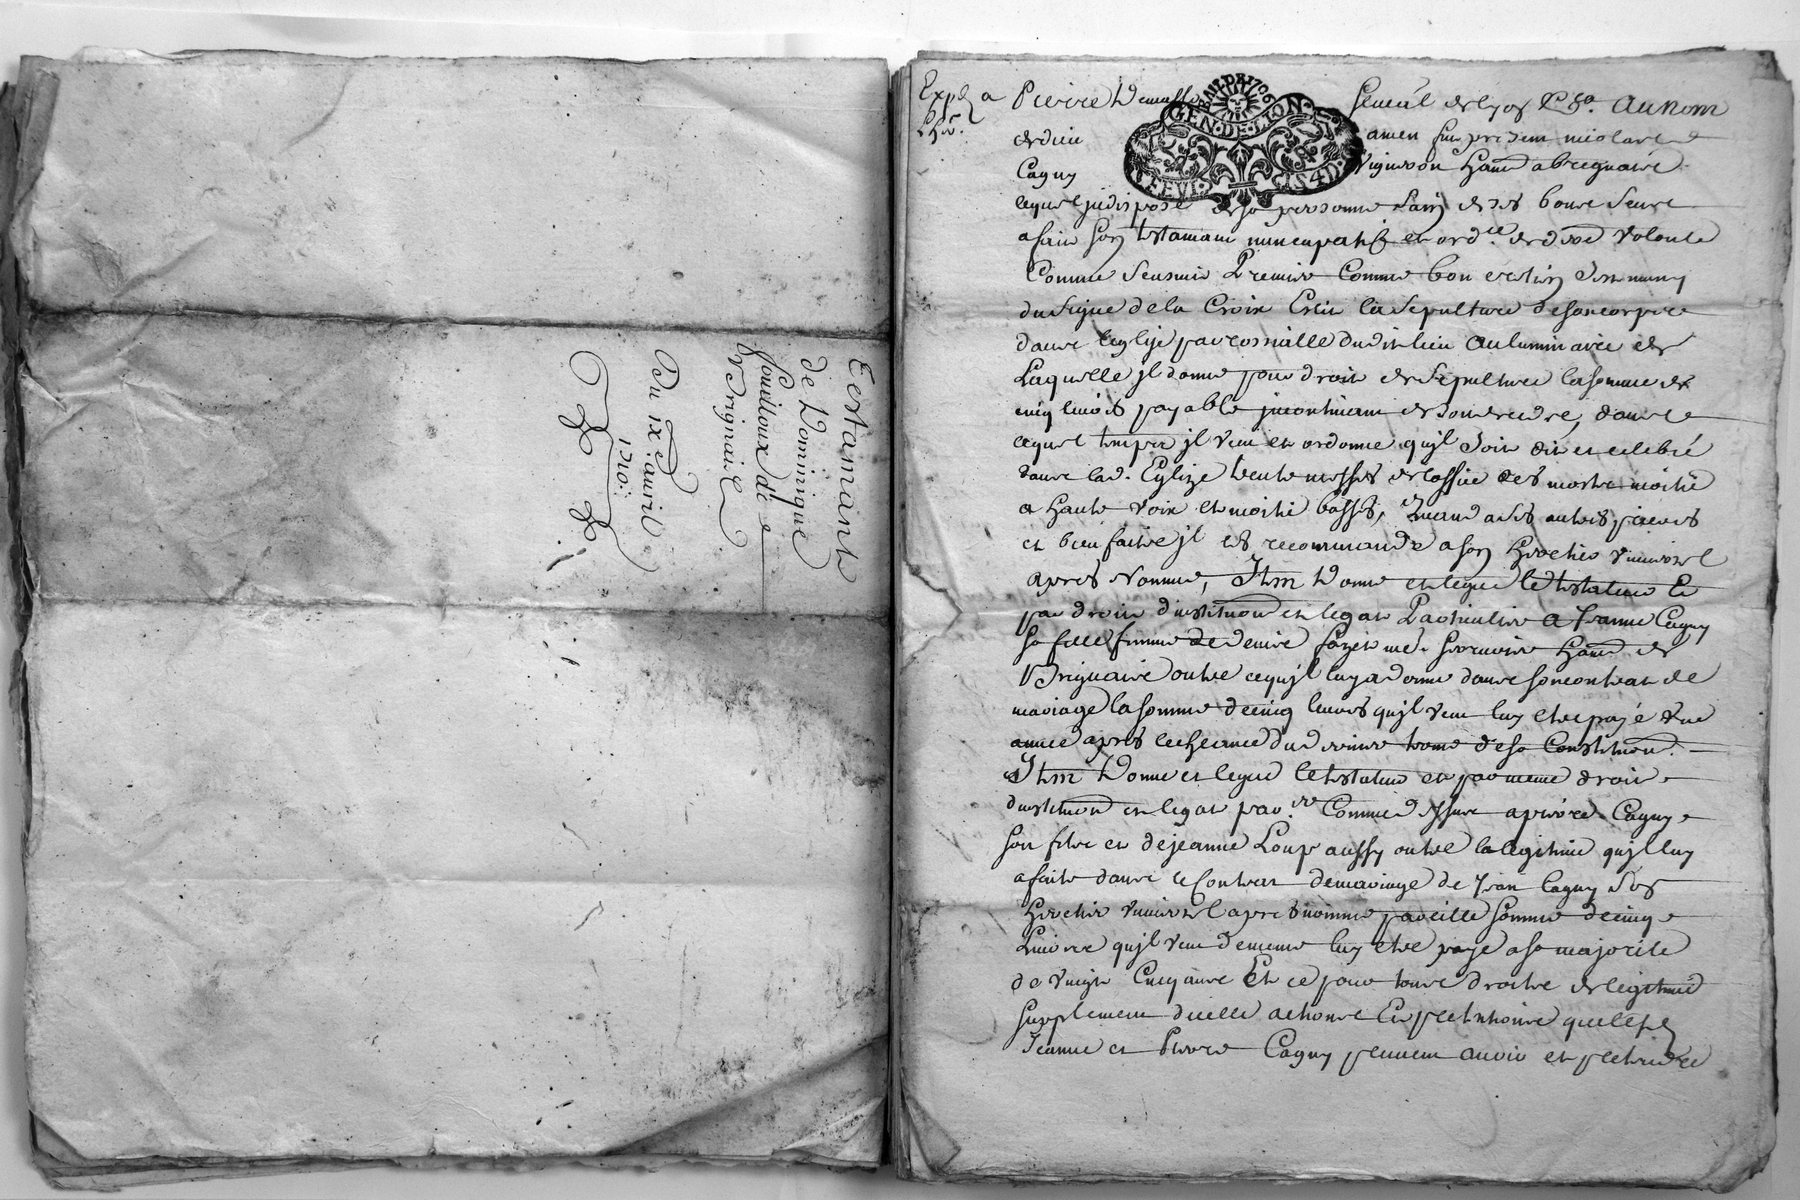 Testamant
de Dominique
fouilloux de
Brignais
Du ix.e auril
1710.
Exp.é a
Pierre
GEN. DE LION
Au nom
de dieu
amen fut present nicolas
Cagny
Vigneron habitant a brignais
lequel indisposé de sa personne sain de ses bons sens
a fait son testamant nuncupatif et ord.ce de der.e volonté
Comme s'ensuit Premier Comme bon crestien s'est muny
du signe de la Croix Esleu la sepulture de son corps
dans leglise parrossialle dudit lieu au luminaire de
Laquelle jl donne pour droit de sepulture la somme de
cinq liures payable jncontinant
lequel temps jl veut et ordonne qu'jl soit dit et celebré
dans lad. Eglize trente messes de loffice des morts moitié
a haute voix et moitié basses, Quand a ses autres prieres
et bien faits jl est recommande a son heretier vniuersel
apres nommé, Item Donne et legue le testateur
par droit d'institution et legat Particulier a Jeanne Cagny
sa fille femme de denis habitant de
Brignais outre ce qu'jl luy a donné dans son contrat de
mariage la somme de cinq liures qu'jl veut luy etre payé vne
année apres lescheance du dernier terme de sa Constitution.
Item Donne et legue le testateur et par meme droit
d'institution et legat par.er Comme dessus a pierre Cagny
son fils et de jeanne Loup aussy outre la legitime qu'jl luy
a faite dans le Contrat de mariage de Jean Cagny son
heretier vniuersel apres nommé pareille somme de cinq
Liures qu'jl veut de meme luy etre paye a sa majorité
de vingt Cinq ans Et ce pour tous droits de legitime
supplement d'icelle actions Et pretentions que lesd.
Jeanne et Pierre Cagny peuuent auoir et pretendre